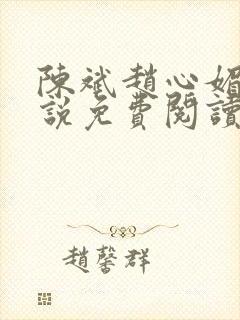 陳斌趙心媚
說免費閱讀
趙馨群